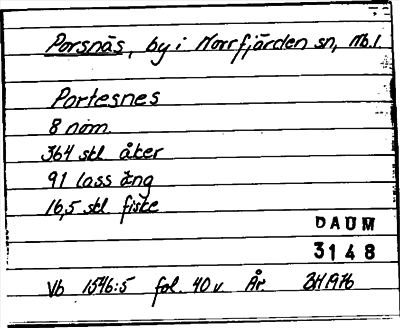 Porsnäs, by i Norrfjärden sn, Nb.l.
Portesnes
8 nam.
364 skl åker
91 lass äng
16,5 skl fiske
DAUM
3148
Vb 1546:5 fol. 40 v År